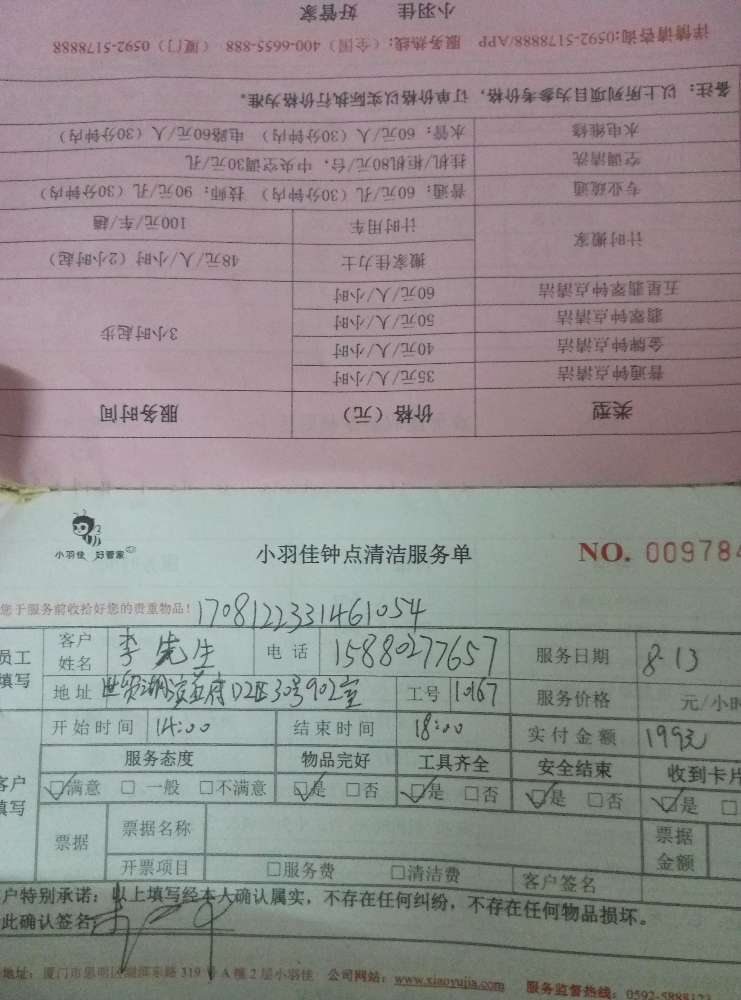 小羽佳 好管家
详情请咨询:0592-5178888/APP 服务热线:(全国)400-6655-888 (厦门) 0592-5178888
备注: 以上所列项目为参考价格, 订单价格以实际执行价格为准。
水电维修 水管: 60元/人 (30分钟内) 电路60元/人 (30分钟内)
空调清洗 挂机/柜机80元/台, 中央空调30元/孔
专业疏通 普通: 60元/孔 (30分钟内) 技师: 90元/孔 (30分钟内)
计时搬家 计时用车 100元/车/趟
搬家佳力士 48元/人/小时 (2小时起)
五星翡翠钟点清洁 60元/人/小时
翡翠钟点清洁 50元/人/小时 3小时起步
金牌钟点清洁 40元/人/小时
普通钟点清洁 35元/人/小时
类型 价格 (元) 服务时间
小羽佳 好管家 小羽佳钟点清洁服务单 NO. 009784
您于服务前收拾好您的贵重物品! 1708122331461054
员工填写 客户姓名 李先生 电话 15880277657 服务日期 8.13
地址 世贸湖滨首府D2区30号902室 工号 10167 服务价格 元/小时
开始时间 14:00 结束时间 18:00 实付金额 199元
客户填写 服务态度 物品完好 工具齐全 安全结束 收到卡片
☑满意 □一般 □不满意 ☑是 □否 ☑是 □否 ☑是 □否 ☑是 □
票据 票据名称 票据金额
开票项目 □服务费 □清洁费 客户签名
户特别承诺: 以上填写经本人确认属实, 不存在任何纠纷, 不存在任何物品损坏。
此确认签名
地址: 厦门市思明区湖滨东路319号A楼2层小羽佳 公司网站: www.xiaoyujia.com 服务监督热线: 0592-5888123